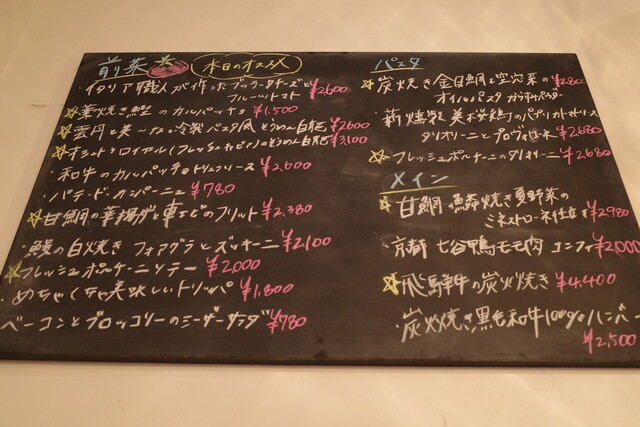 前菜 本日のオススメ
・イタリア職人が作ったブッラータチーズと
フルーツトマト ¥2,600
☆藁焼き鰹のカルパッチョ ¥1,500
☆雲丹と 冷製パスタ風そうめん ¥2,600
☆オシェトラロイヤル(フレッシュキャビア)のそうめん ¥3,100
・和牛のカルパッチョトリュフソース ¥2,600
・パテ・ド・カンパーニュ ¥780
☆甘鯛の 揚げと車えびのフリット ¥2,380
・鰻の白焼き フォアグラとズッキーニ ¥2,100
☆フレッシュポルチーニソテー ¥2,000
・めちゃくちゃ美味しいトリッパ ¥1,800
ベーコンとブロッコリーのシーザーサラダ ¥780
パスタ
☆炭焼き金目鯛と空芯菜の ¥2,
オイルパスタ からすみパウダー
・薪燻製 美桜鶏の
タリオリーニとプロヴォローネ ¥2,680
☆フレッシュポルチーニのタリオリーニ ¥2,680
メイン
☆甘鯛・ 焼き 夏野菜の
ミネストローネ仕立て ¥2,980
・京都 七谷鴨モモ肉 コンフィ ¥2,000
☆飛騨牛の炭火焼き ¥4,400
・炭火焼き黒毛和牛100%ハンバー
¥2,500